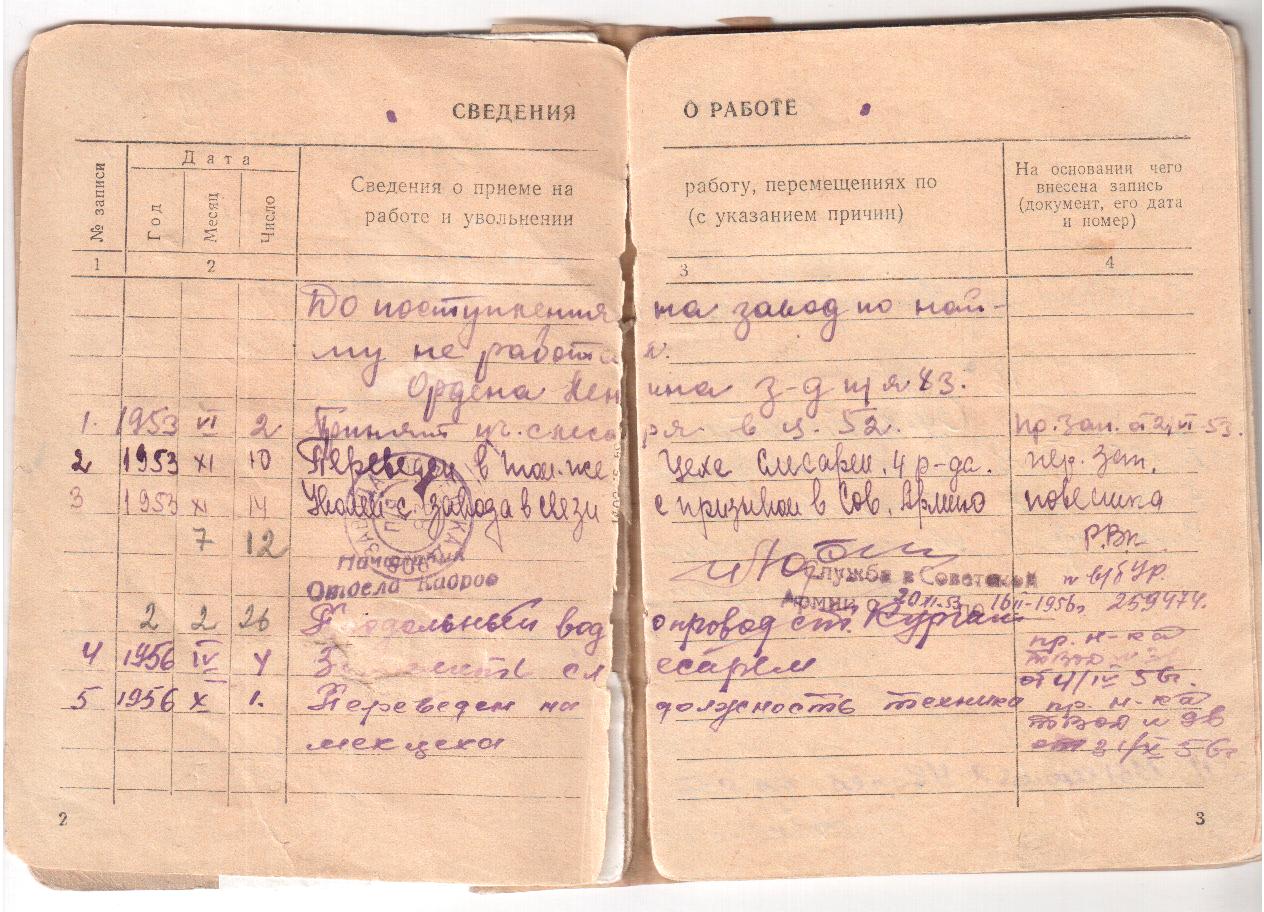 СВЕДЕНИЯ О РАБОТЕ
№ записи
Дата
Год
Месяц
Число
Сведения о приеме на работу, перемещениях по
работе и увольнении (с указанием причин)
На основании чего
внесена запись
(документ, его дата
и номер)
1 2 3 4
До поступления на завод по най-
му не работал.
Ордена Ленина з-д п/я 83.
1. 1953 VI 2 Принят уч. слесаря в ц. 52. пр. зап. от 2/VI-53.
2 1953 XI 10 Переведен в том-же цехе слесарем 4 р-да. пер. зап.
3 1953 XI 14 Уволен с завода в связи с призывом в Сов. Армию повестка
7 12 Р.В.К.
Начальник
Отдела Кадров
Служба в Советской
Армии с 20 XI-53 по 16 II-1956г 259474.
2 2 26 Продольный водопровод ст. Курган
4 1956 IV 4 слесарем пр. н-ка
от 4/IV 56г.
5 1956 X 1. Переведен на должность техника пр. н-ка
мехцеха
2
3